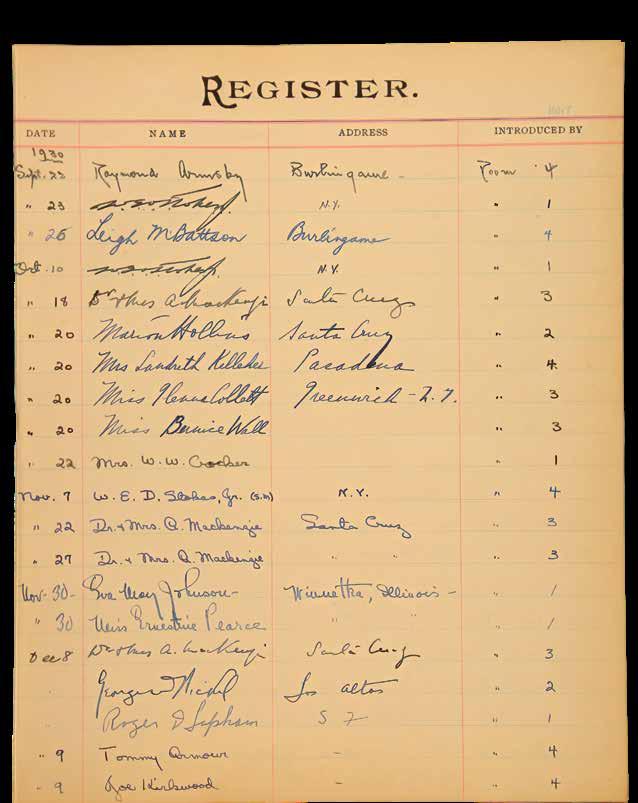 REGISTER.
DATE NAME ADDRESS INTRODUCED BY
1930
Sept. 23 Raymond Armsby Burlingame - Room 4
" 23 N.Y. " 1
" 26 Leigh M Battson Burlingame " 4
Oct. 10 N.Y. " 1
" 18 Dr & Mrs A. MacKenzie Santa Cruz " 3
" 20 Marion Hollins Santa Cruz " 2
" 20 Mrs Pasadena " 4
" 20 Miss Glenna Collett Greenwich - " 3
" 20 Miss Bernice Wall " 3
" 22 Mrs. W. W. Crocker " 1
Nov. 7 W. E. D. Stokes, Jr. N.Y. " 4
" 22 Dr. & Mrs. A. Mackenzie Santa Cruz " 3
" 27 Dr. & Mrs. A. Mackenzie " " " 3
Nov- 30- Eva May Johnson- Winnetka, Illinois - " 1
" 30 Miss Ernestine Pearce " " " 1
Dec 8 Dr & Mrs A. MacKenzie Santa Cruz " 3
Los Altos " 2
Roger D Lapham S F " 1
" 9 Tommy Armour - " 4
" 9 Joe Kirkwood - " 4